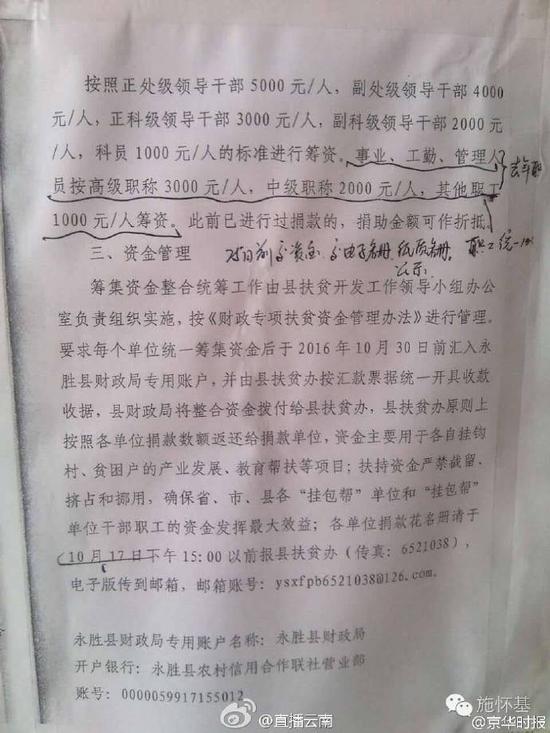 按照正处级领导干部 5000 元/人，副处级领导干部 4000
元/人，正科级领导干部 3000 元/人，副科级领导干部 2000 元
/人，科员 1000 元/人的标准进行筹资。事业、工勤、管理人
员按高级职称 3000 元/人，中级职称 2000 元/人，其他职工
1000 元/人筹资。此前已进行过捐款的，捐助金额可作折抵。
三、资金管理
25日前交资金 交电子名册，纸质名册，
公示
职工统一
筹集资金整合统筹工作由县扶贫开发工作领导小组办公
室负责组织实施，按《财政专项扶贫资金管理办法》进行管理。
要求每个单位统一筹集资金后于 2016 年 10 月 30 日前汇入永
胜县财政局专用账户，并由县扶贫办按汇款票据统一开具收款
收据，县财政局将整合资金拨付给县扶贫办，县扶贫办原则上
按照各单位捐款数额返还给捐款单位，资金主要用于各自挂钩
村、贫困户的产业发展、教育帮扶等项目；扶持资金严禁截留、
挤占和挪用，确保省、市、县各“挂包帮”单位和“挂包帮”
单位干部职工的资金发挥最大效益；各单位捐款花名册请于
10 月 17 日下午 15:00 以前报县扶贫办（传真：6521038），
电子版传到邮箱，邮箱账号：ysxfpb6521038@126.com。
永胜县财政局专用账户名称：永胜县财政局
开户银行：永胜县农村信用合作联社营业部
账号：0000059917155012
施怀基
@直播云南
@京华时报